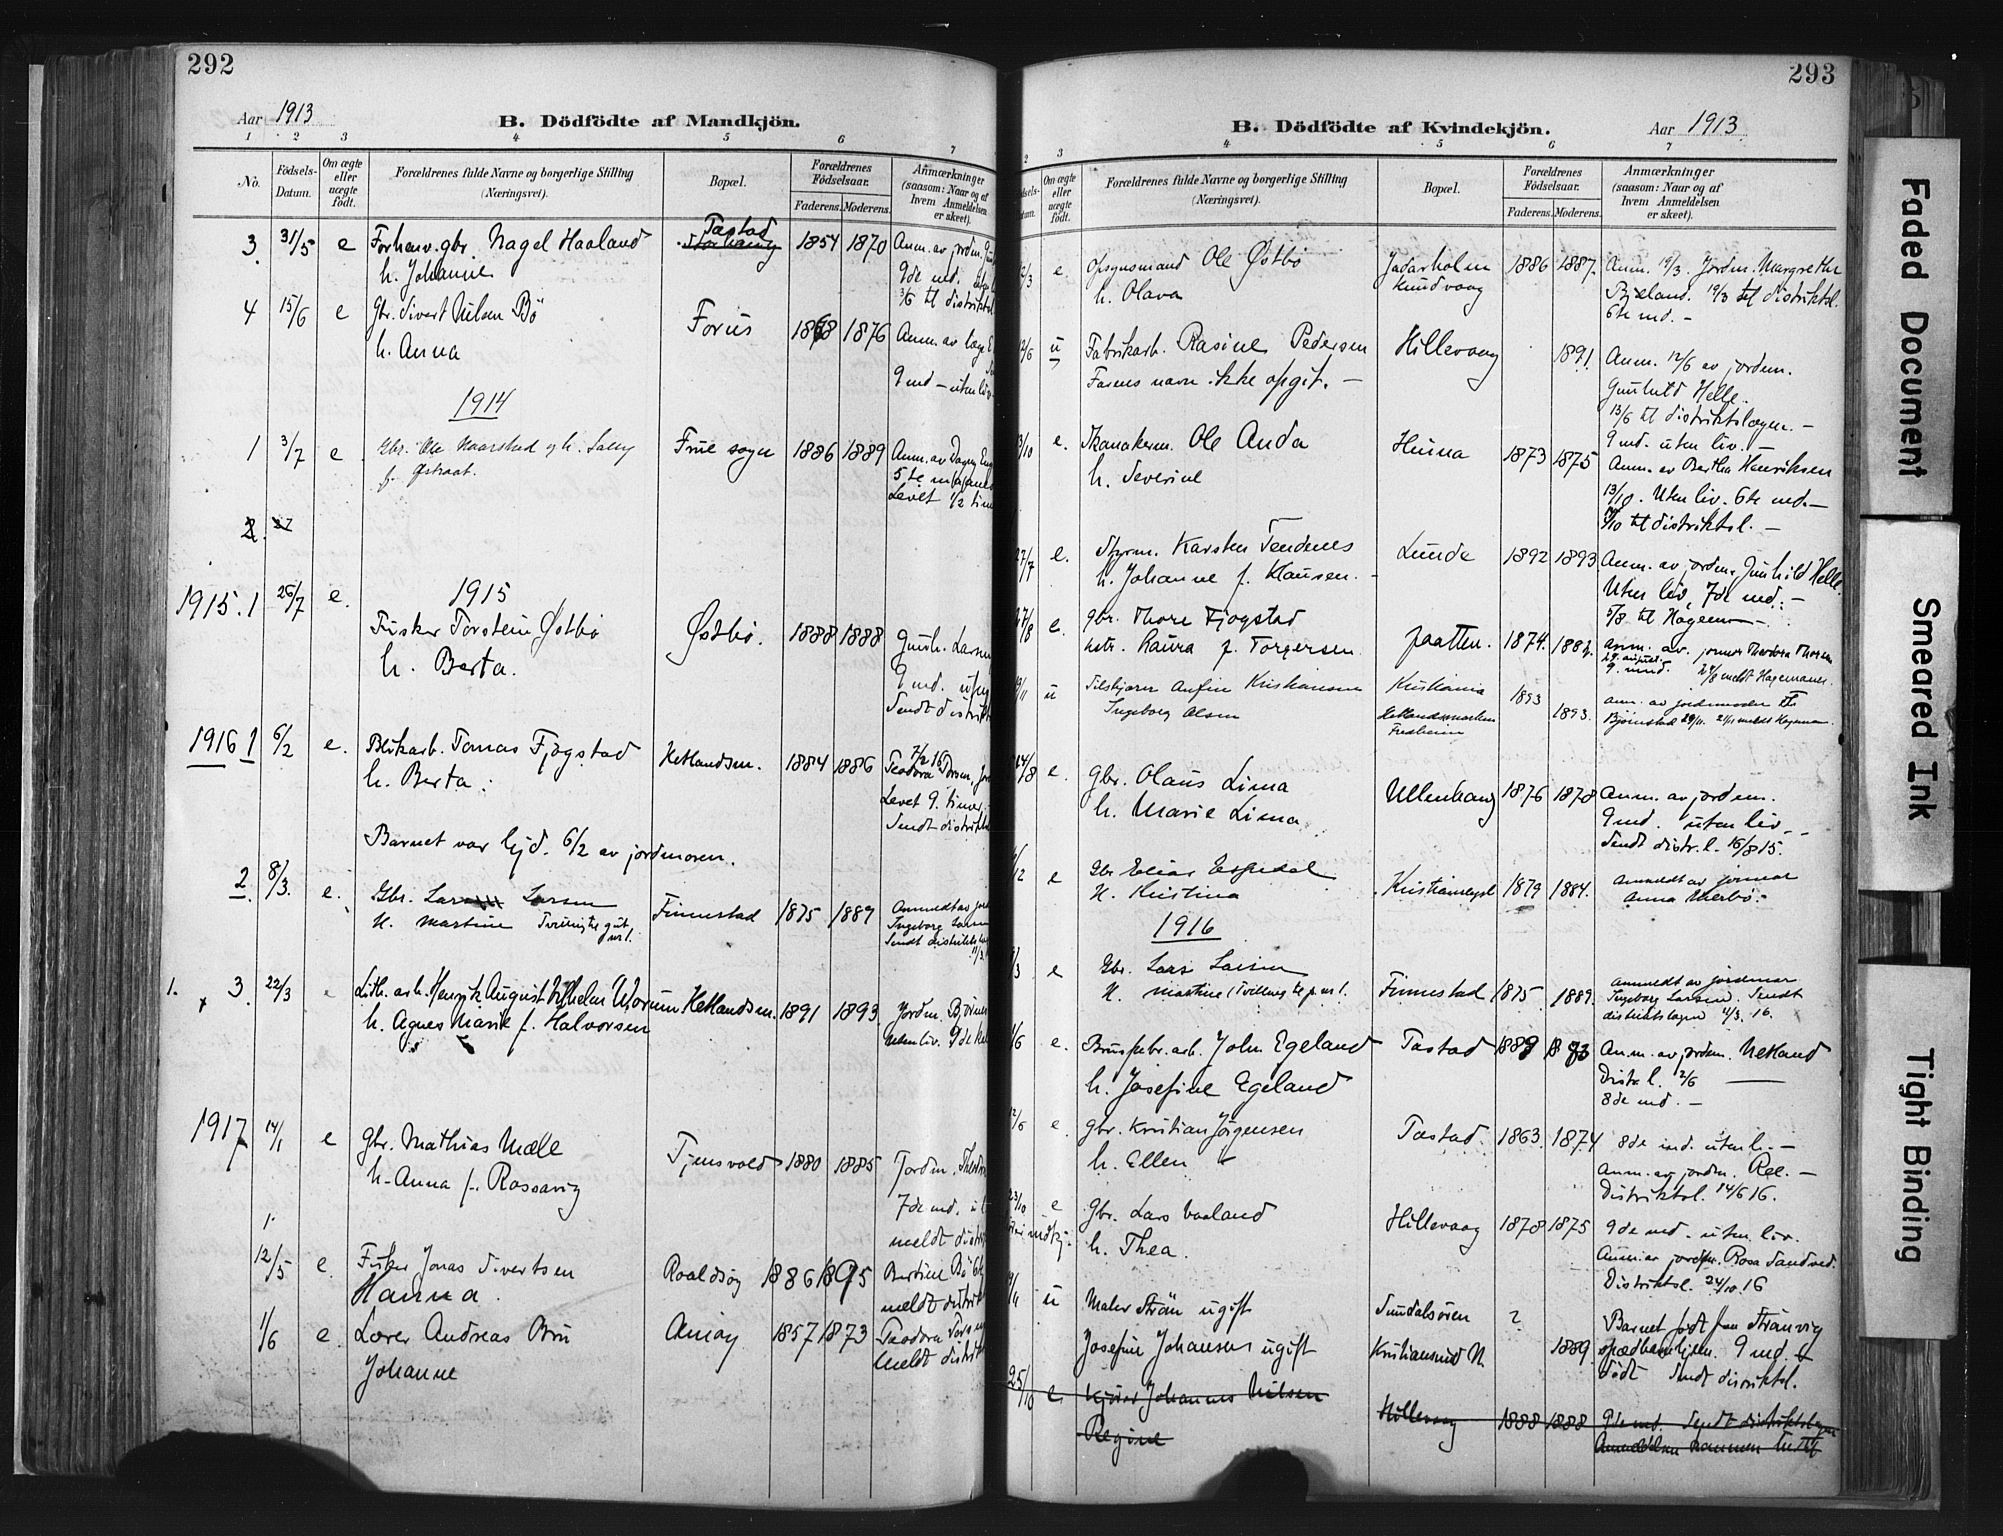 292
Aar 1913
B. Dödfödte af Mandkjön.
1 2 3 4 5 6 7
No.
Födsels-Datum.
Om ægte eller uægte födt.
Forældrenes fulde Navne og borgerlige Stilling (Næringsvei).
Bopæl.
Forældrenes Födselsaar.
Faderens. Moderens.
Anmærkninger (saasom: Naar og af hvem Anmeldelsen er skeet).
3. 31/5 e Forhenv. gbr. Nagel Haaland Tastad 1854 1870 Anm. av jordm.
h. Johanne 9de md.
3/6 til distriktsl.
4 15/6 e Gbr. Sivert Nilsen Bö Forus 1868 1876 Anm. av læge
h. Anna
9 md - uten liv
1914
1 3/7 e Gbr. Ole Naarstad og h. Sally Frue sogn 1886 1889 Anm. av Dagny
f. Østraat. 5te maaned
Levet 1/2 time
2. 27
1915.1 26/7 e. 1915
Fisker Torstein Østbö Østbö. 1888 1888 Gunh. Larsen
h. Berta. 9 md.
Sendt distrikt
1916 1 6/2 e. Blikarb. Tomas Fjogstad Hetlandsm. 1884 1886 7/2 16
h. Berta. Teodora
Levet 9 timer.
Sendt distrikt
Barnet var hjd. 6/2 av jordmoren.
2. 8/3. e. Gbr. Lars Larsen Finnestad 1875 1889 Anmeldt av jord
H. Martine Tvilling te gut nr 1. Ingeborg Larsen
Sendt distriktslæ
11/3
1. 3. 22/3 Lith. arb. Henrik August Vilhelm Worum Hetlandsm. 1891 1893 Jordm. Björnes
h. Agnes Marie f. Halvorsen uten liv. 9de
1917 14/1 e Gbr. Mathias Mæle Tjensvold 1880 1885 Jordm.
h. Anna f. Rossavig 7de md.
meldt distr
1.
12/5 e. Fisker Jonas Sivertsen Roaldsøy 1886 1895 Bertine Bö
Hanna. meldt distrikt
1/6 e Lærer Andreas Bru Amøy 1857 1873 Teodora
Johanne meldt distrikt
293
B. Dödfödte af Kvindekjön.
Aar 1913
2 3 4 5 6 7
Om ægte eller uægte födt.
Forældrenes fulde Navne og borgerlige Stilling (Næringsvei).
Bopæl.
Forældrenes Födselsaar.
Faderens. Moderens.
Anmærkninger (saasom: Naar og af hvem Anmeldelsen er skeet).
e. Opsynsmand Ole Østbö Jadarholm 1886 1887. Anm. 19/3. Jordm. Margrethe
h. Olava Hundvaag Bjeland. 19/3 til distriktsl.
6te md. -
12/6 u Fabrikarb. Rasine Pedersen Hillevaag 1891. Anm. 12/6 av jordm.
Farens navn ikke opgit. - Gunhild Helle.
13/6 til distriktslægen. -
9 md. uten liv. -
13/10 e. Skomakerm. Ole Anda Hinna 1873 1875 Anm. av Bertha Henriksen
h. Severine 13/10. Uten liv. 6te md. -
til distriktsl. -
27/7 e. Styrm. Karsten Tendenes Lunde 1892 1893 Anm. av jordm. Gunhild Helle.
h. Johanne f. Klausen. - Uten liv, 7de md. -
5/8 til Hagemann -
27/8 e. gbr. Thore Fjogstad Jaatten. 1874. anm. av. jormor Theodora Thorsen
hstr. Laura f. Torgersen 29. august. 9. mnd. 29/8 meldt Hagemann.
u Arfin Kristiansen Kristiania 1893 anm. av jordmoder
Ingeborg Olsen Hetlandsmarken 1893. Björnstad 20/11. 21/11 meldt Hagemann.
Fredheim
14/8 e. Gbr. Olaus Lima Ullenhaug 1876 1878 Anm. av jordm.
h. Marie Lima 9 md. uten liv. -
Sendt distr. l. 16/8 15.
12 e Gbr. Elias Espedal Kristianslyst 1879 1884. anmeldt av jormor
H. Kristina Anna Ueland.
1916
3 e Gbr. Lars Larsen Finnestad 1875 1889. anmeldt av jordemor
H. Martine (Tvilling te p. nr 1. Ingeborg Larsen. Sendt
distriktslægen 11/3. 16.
6 e. John Egeland Tastad 1883 Anm. av jordm. Netland
h. Josefine Egeland Distr. l. 2/6
8de md. -
12/6 e. Gbr. Kristian Jörgensen Tastad. 1863. 1874 8de md. uten l. -
h. Ellen - Anm. av jordm. Ree. -
Distriktsl. 14/6 16.
23/10 e Gbr. Lars Vaaland Hillevaag 1878 1875 9de md. uten liv.
h. Thea. Anm. av jordm. Rosa Sandved.
Distriktsl. 24/10 16
u Maler ugift Sundalsören ? Barnet født paa Stranvig
Josefine Johansen ugift Kristiansund N. 1889. spædbarnhjem. 9 md.
dødt Sendt distriktsl.
25/10 e. Kjörer Johannes Nilsen
Regine Hillevaag 1888 1888 9de md. Sendt distriktslægen
Faded Document
Smeared Ink
Tight Binding